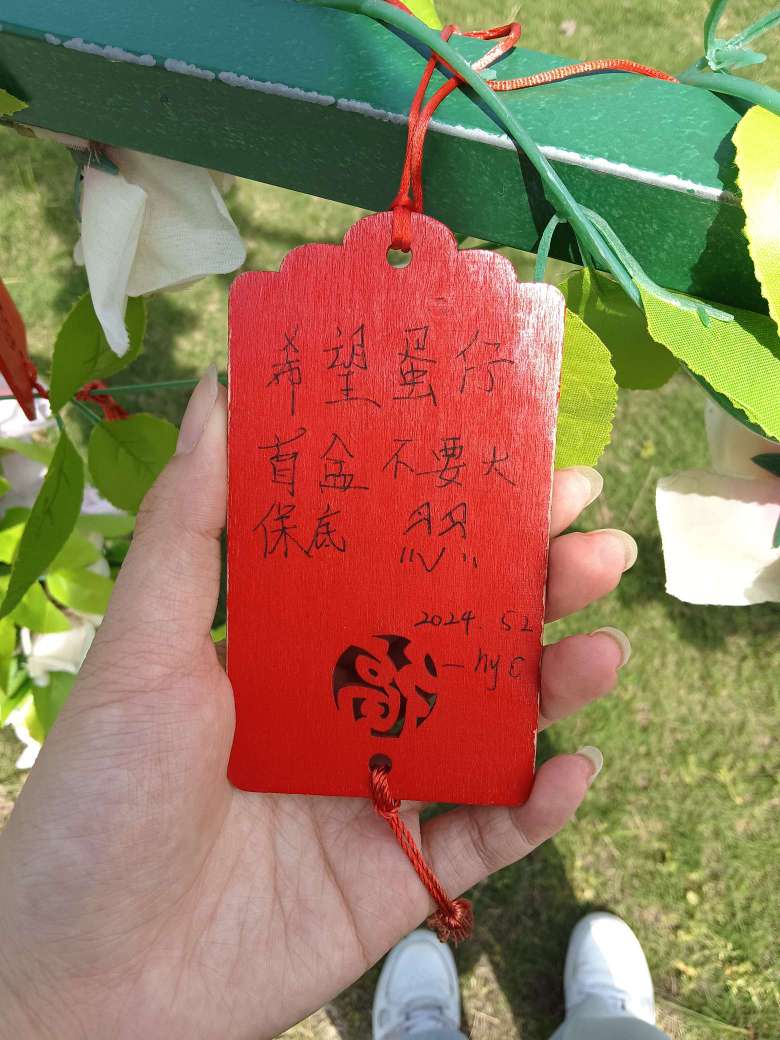 希望蛋仔
盲盒不要大
保底 怒
2024.5.2
—hyc
福